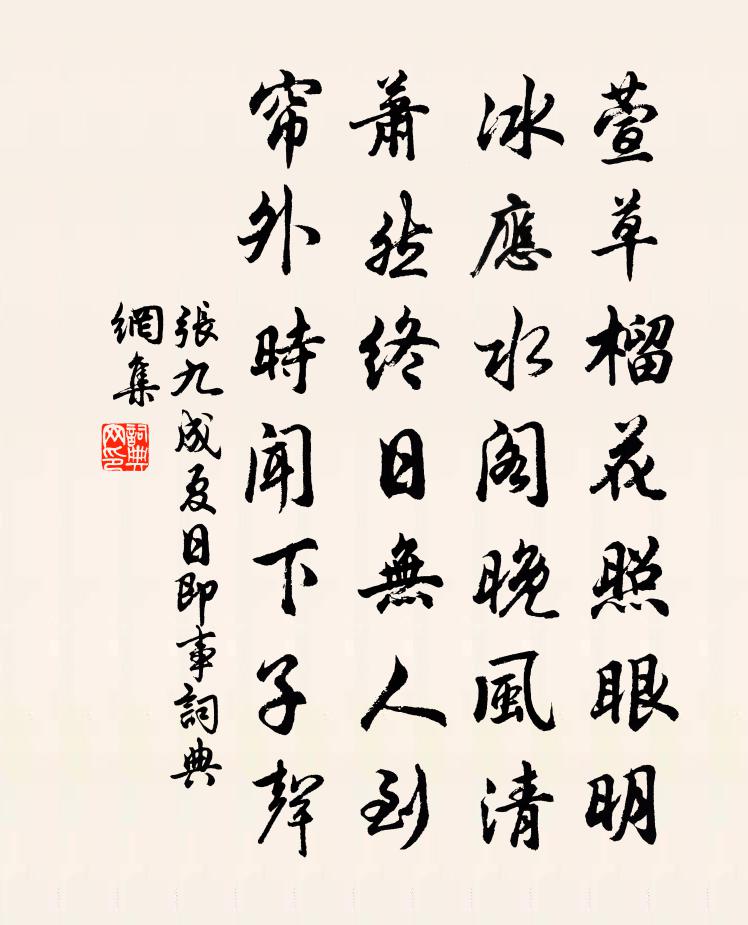 萱草榴花照眼明
冰應水閣晚風清
蕭然終日無人到
帘外時聞下子聲
張九成夏日即事詞典
網集
詞典
网印